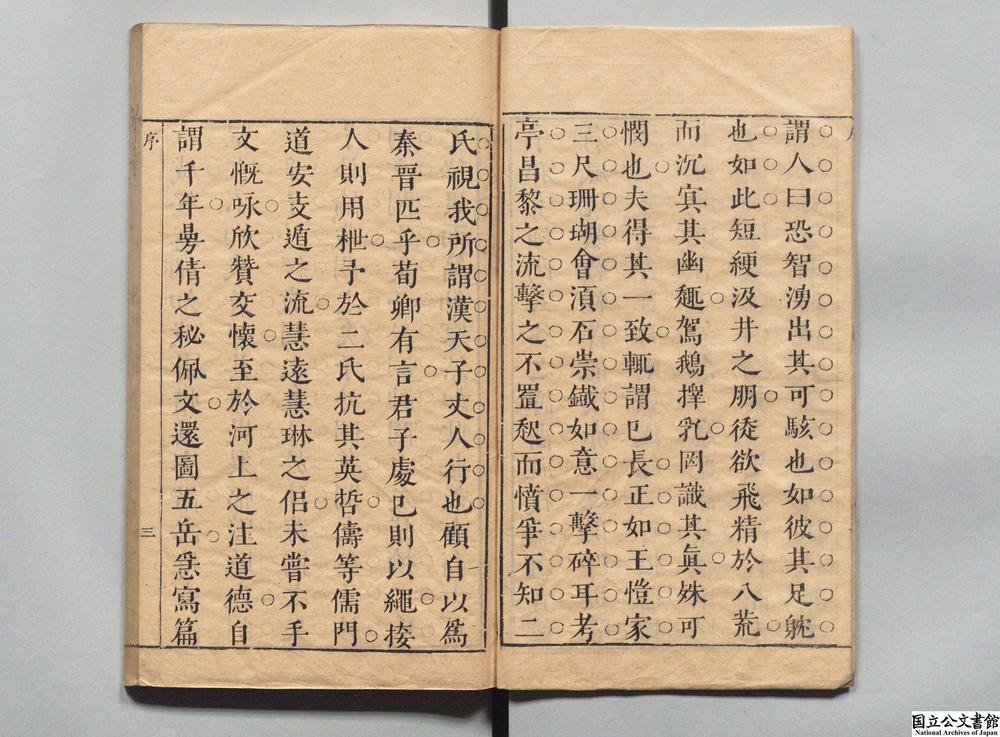 謂人曰恐智湧出其可駭也如彼其足躭
也如此短綆汲井之朋徒欲飛精於八荒
而沉寘其幽𧼈鴐鵝擇乳罔識其眞姝可
憫也夫得其一致輒謂已長正如王愷家
三尺珊瑚會湏石崇鐵如意一擊碎耳考
亭昌黎之流擊之不置愁而憤爭不知二
氏視我所謂漢天子丈人行也顧自以爲
秦晉匹乎荀卿有言君子處已則以繩接
人則用枻予於二氏抗其英哲儔等儒門
道安支遁之流慧遠慧琳之侶未嘗不手
文慨咏欣贊交懷至於河上之注道德自
謂千年曼倩之秘佩文還圖五岳爲寫篇
序
三
国立公文書館
National Archives of Japan